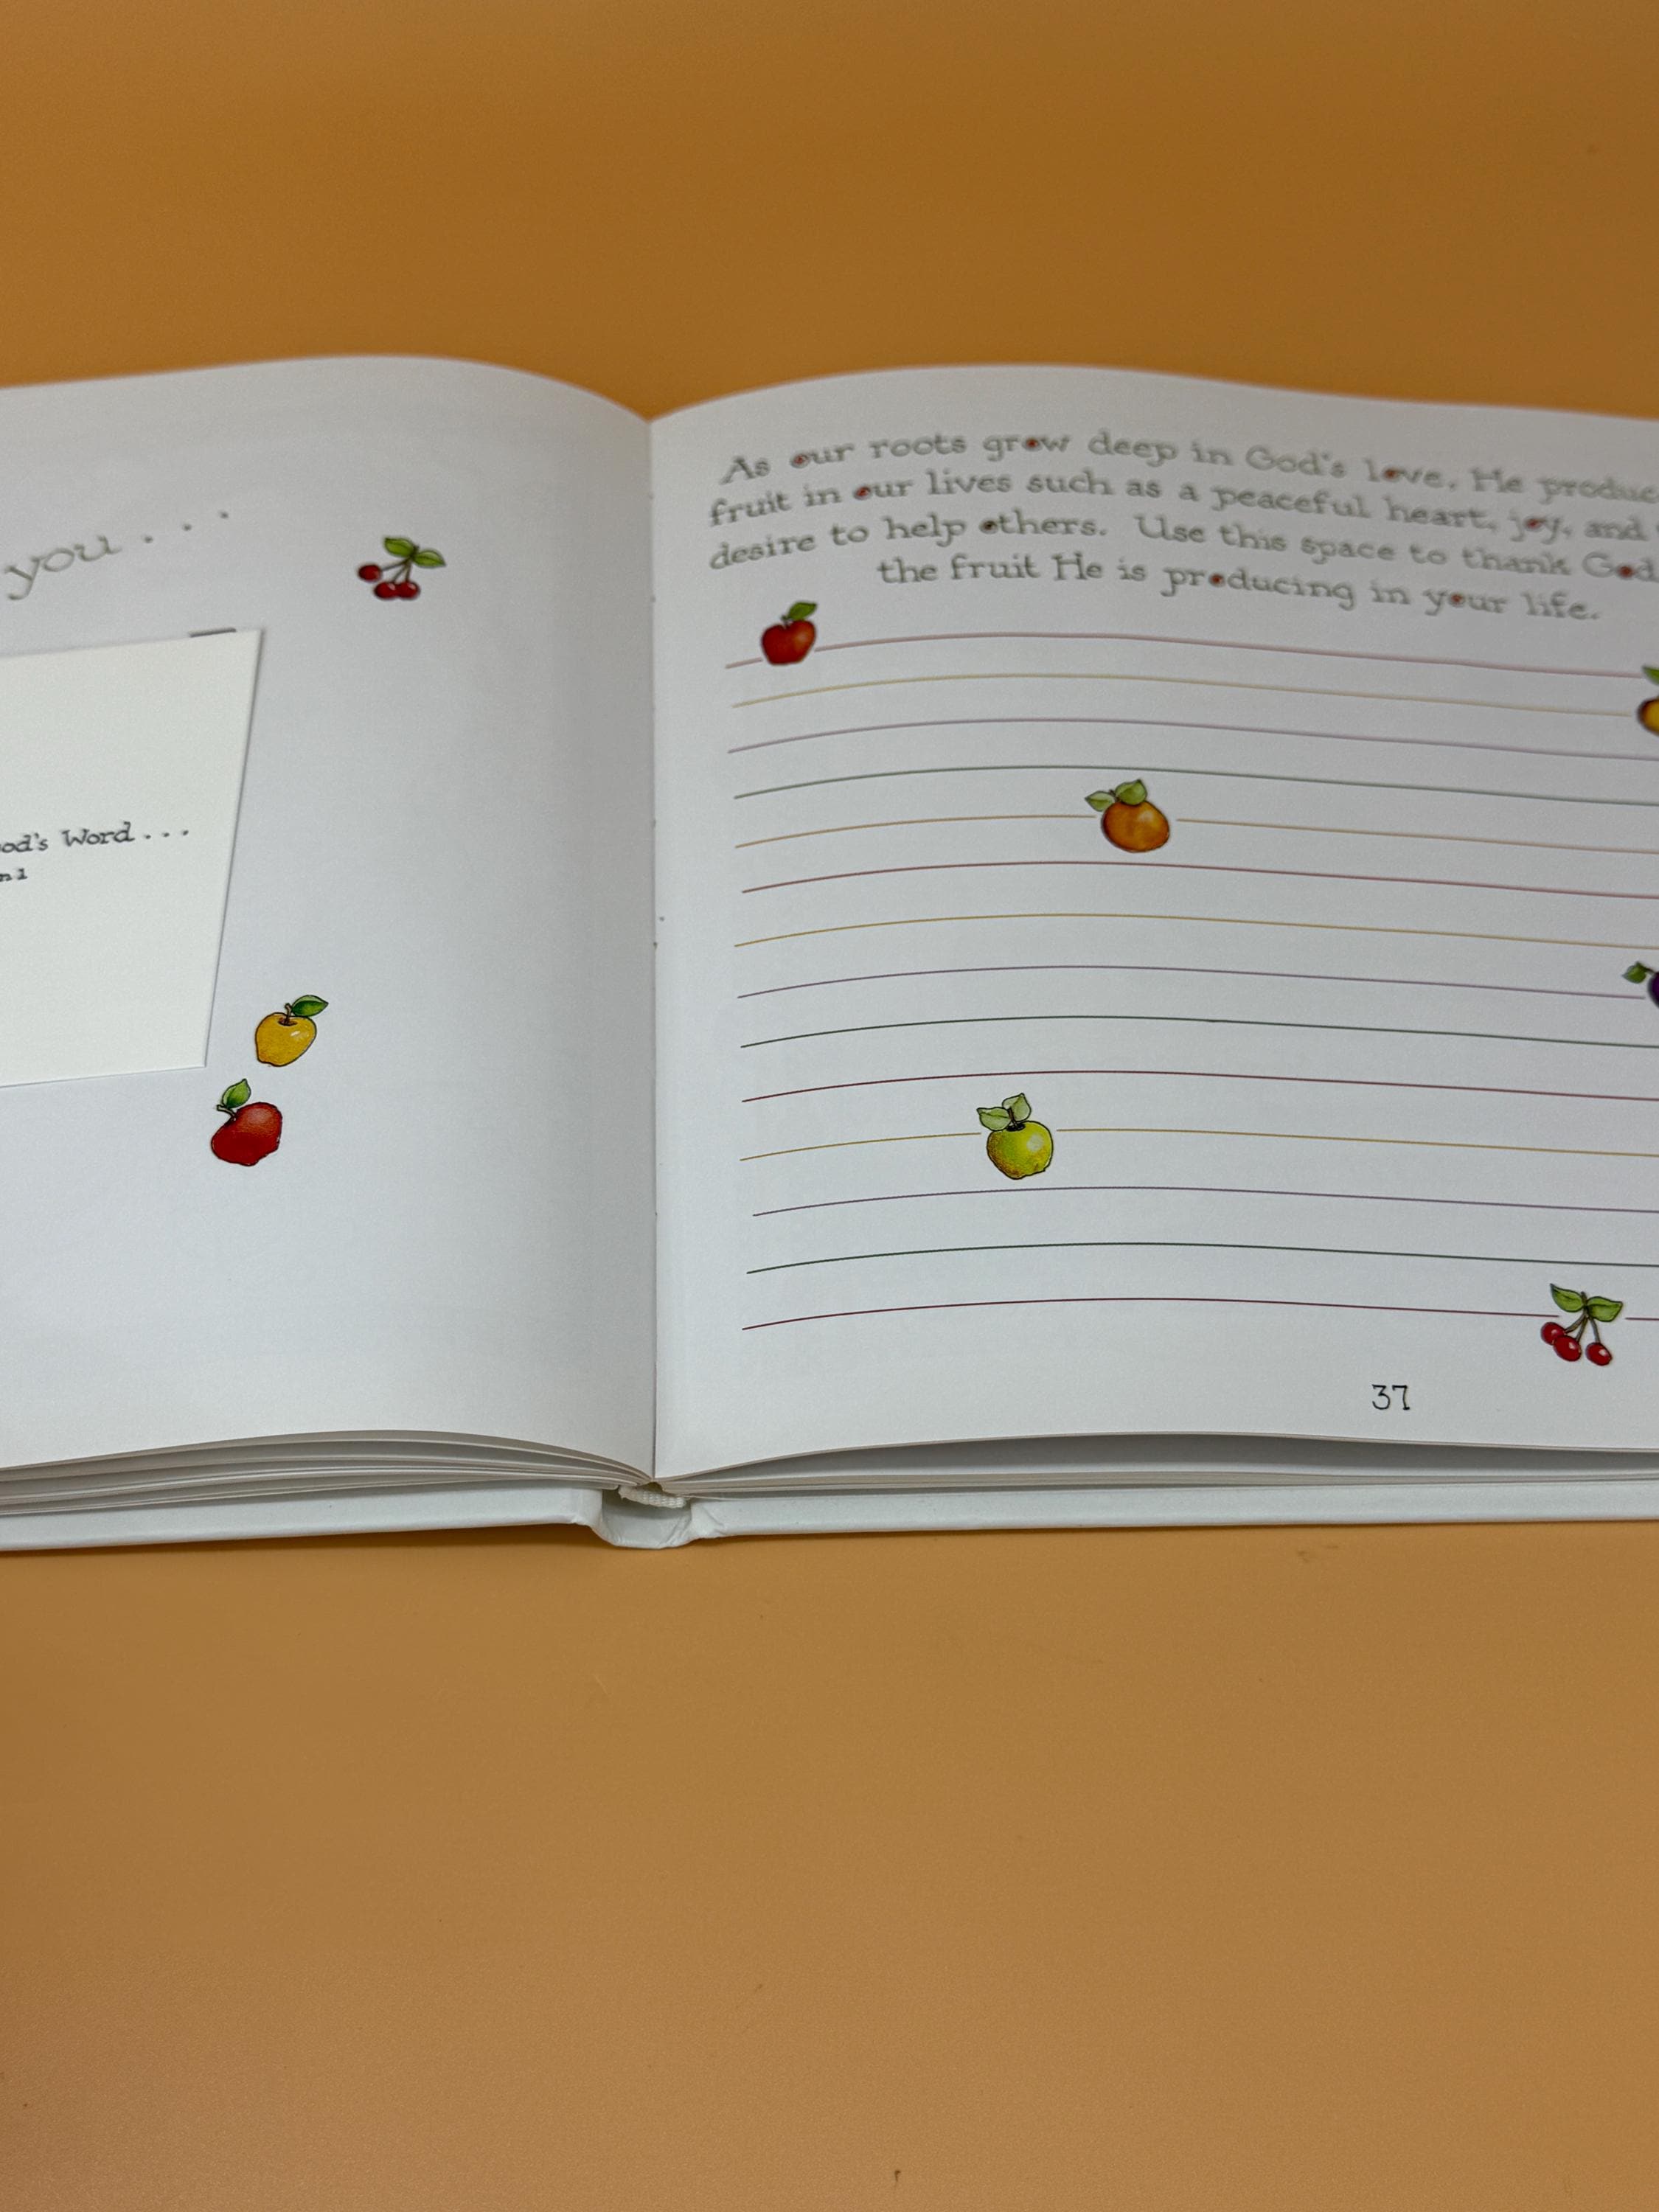 you...
od's Word...
n 1
As our roots grow deep in God's love, He produc
fruit in our lives such as a peaceful heart, joy, and
desire to help others. Use this space to thank God
the fruit He is producing in your life.
37